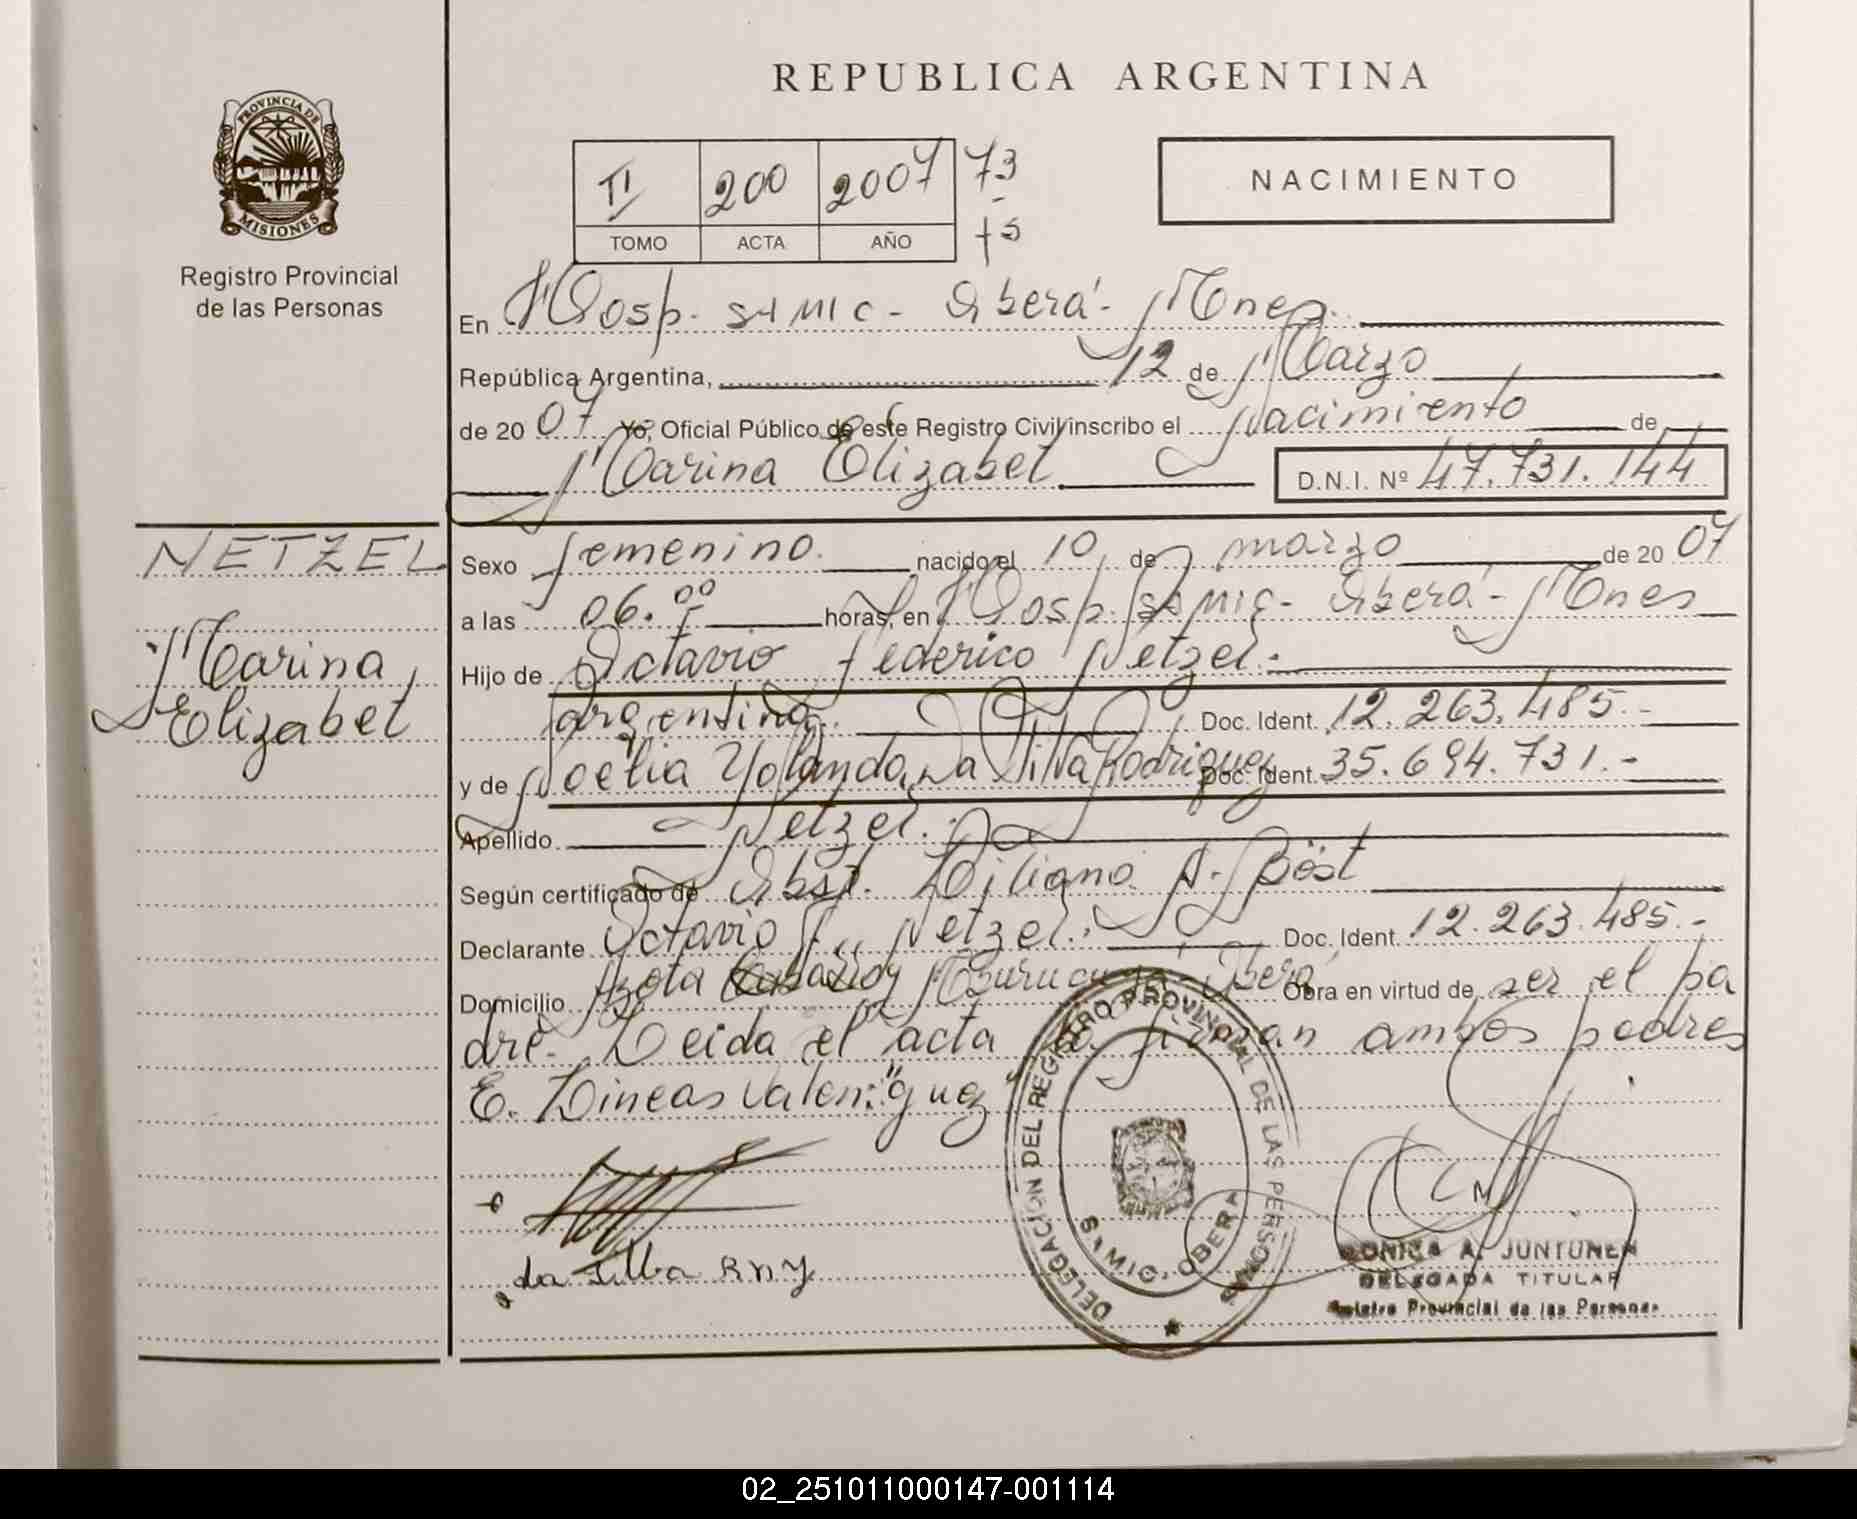 REPUBLICA ARGENTINA
PROVINCIA DE
MISIONES
Registro Provincial
de las Personas
II 200 2007 73
TOMO ACTA AÑO
NACIMIENTO
En Hosp. SAMIC - Oberá - Mnes.
República Argentina, 12 de Marzo
de 2007 Yo, Oficial Público de este Registro Civil inscribo el Nacimiento de
Marina Elizabet D.N.I. Nº 47.731.144
NETZEL
Marina
Elizabet
Sexo femenino. nacido el 10 de marzo de 2007
a las 06.00 horas, en Hosp. SAMIC - Oberá - Mnes
Hijo de Octavio Federico Netzel.-
argentino. Doc. Ident. 12.263.485.-
y de Noelia Yolanda Da Silva Rodriguez Doc. Ident. 35.694.731.-
Apellido Netzel.
Según certificado de Obst. Liliana A. Böst
Declarante Octavio F. Netzel. Doc. Ident. 12.263.485.-
Domicilio Oberá Obra en virtud de ser el pa
dre. Leida el acta la firman ambos padres
E. Lineas valen: "guez"
da Silba
DELEGACION DEL REGISTRO PROVINCIAL DE LAS PERSONAS
SAMIC, OBERA
MONICA A. JUNTUNEN
DELEGADA TITULAR
Registro Provincial de las Personas
02_251011000147-001114